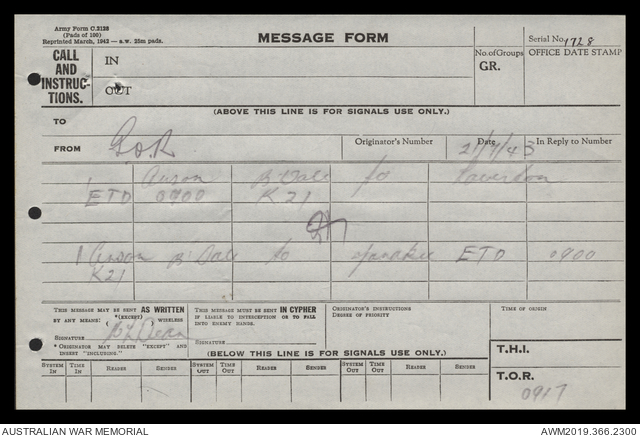 Army Form C.2136
(Pads of 100)
Reprinted March, 1942 — s.w. 25m pads.
MESSAGE FORM
Serial No. 1728
CALL
AND
INSTRUC-
TIONS.
IN
OUT
No. of Groups
GR.
OFFICE DATE STAMP
(ABOVE THIS LINE IS FOR SIGNALS USE ONLY.)
TO
FROM G.O.R
Originator's Number
Date 21/4/43
In Reply to Number
1 Anson B'Dale to Laverton
ETD 0900 K21
1 Anson B'Dale to ETD 0900
K21
THIS MESSAGE MAY BE SENT AS WRITTEN
BY ANY MEANS: *(EXCEPT) WIRELESS
( )
SIGNATURE
* ORIGINATOR MAY DELETE "EXCEPT" AND
INSERT "INCLUDING."
THIS MESSAGE MUST BE SENT IN CYPHER
IF LIABLE TO INTERCEPTION OR TO FALL
INTO ENEMY HANDS.
SIGNATURE
ORIGINATOR'S INSTRUCTIONS
DEGREE OF PRIORITY
TIME OF ORIGIN
(BELOW THIS LINE IS FOR SIGNALS USE ONLY.)
T.H.I.
SYSTEM IN TIME IN READER SENDER SYSTEM OUT TIME OUT READER SENDER SYSTEM OUT TIME OUT READER SENDER
T.O.R.
0917
AUSTRALIAN WAR MEMORIAL
AWM2019.366.2300